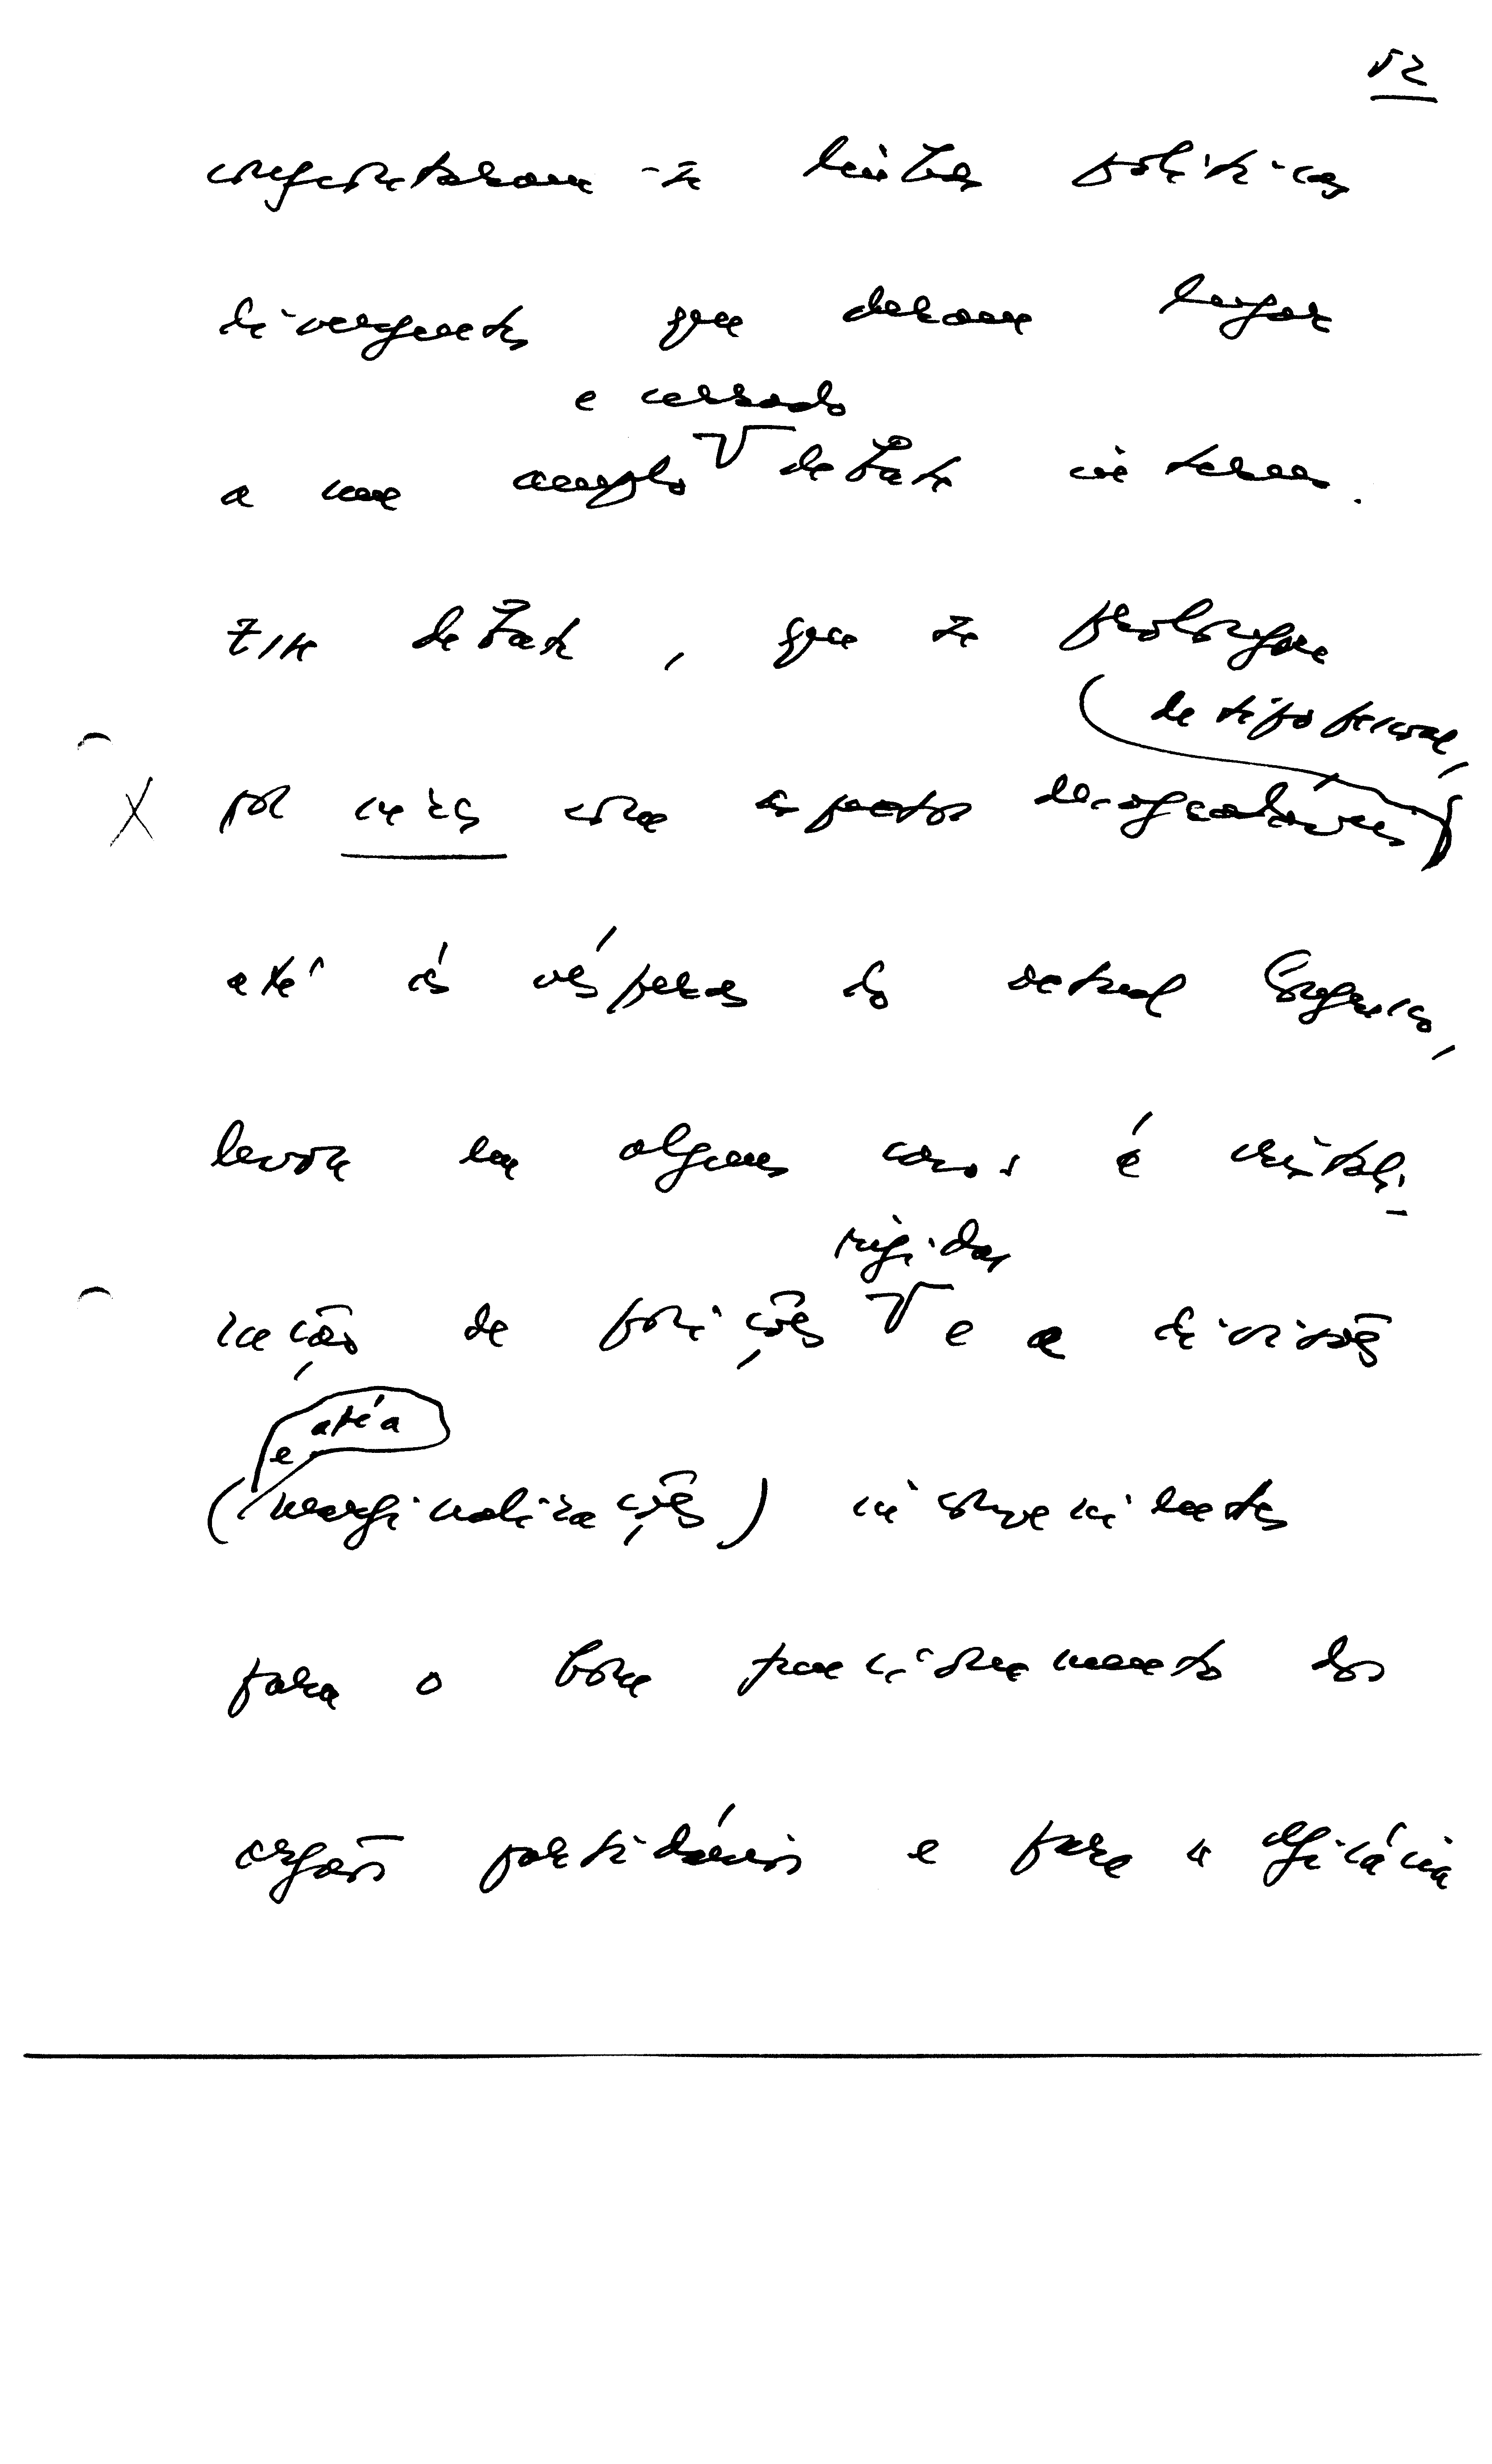 52
confrontaram-se linhas políticas
divergentes que deram lugar
e cerrado
a um amplo debate interno.
Esse debate, que se prolongou
de tipo pessoal,
por vezes com aspectos desagradáveis
até às vésperas do actual Congresso,
levou em alguns casos é cristali-
rígidas
zação de posições e a divisões
e até a
(marginalizações) inconvenientes
para o bom funcionamento dos
orgãos partidários e para a eficácia